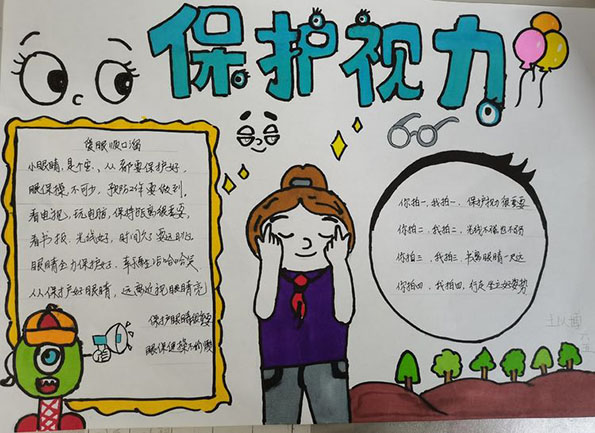 保护视力
爱眼顺口溜
小眼睛,是个宝,人人都要保护好,
眼保操不可少,预防工作要做到,
看电视,玩电脑,保持距离很重要,
看书报,光线好,时间久了要远眺
眼睛全力保护好,幸福生活哈哈笑
人人保护好眼睛,远离近视眼睛亮
保护眼睛很重要
眼保健操不可少
你拍一,我拍一,保护视力很重要
你拍二,我拍二,光线不强也不弱
你拍三,我拍三,书离眼睛一尺远
你拍四,我拍四,行走坐立好姿势